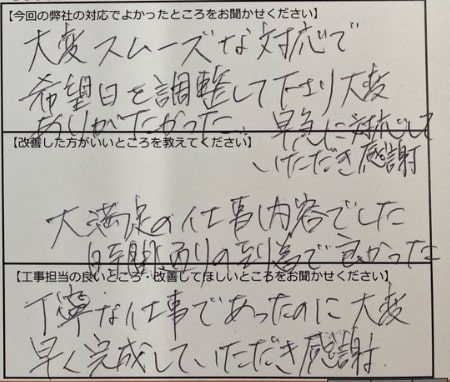 【今回の弊社の対応でよかったところをお聞かせください】
大変スムーズな対応で
希望日を調整して下さり大変
ありがたかった 早急に対応して
いただき感謝
【改善した方がいいところを教えてください】
大満足の仕事内容でした
時間通りの到着で良かった
【工事担当の良いところ・改善してほしいところをお聞かせください】
丁寧な仕事であったのに大変
早く完成していただき感謝